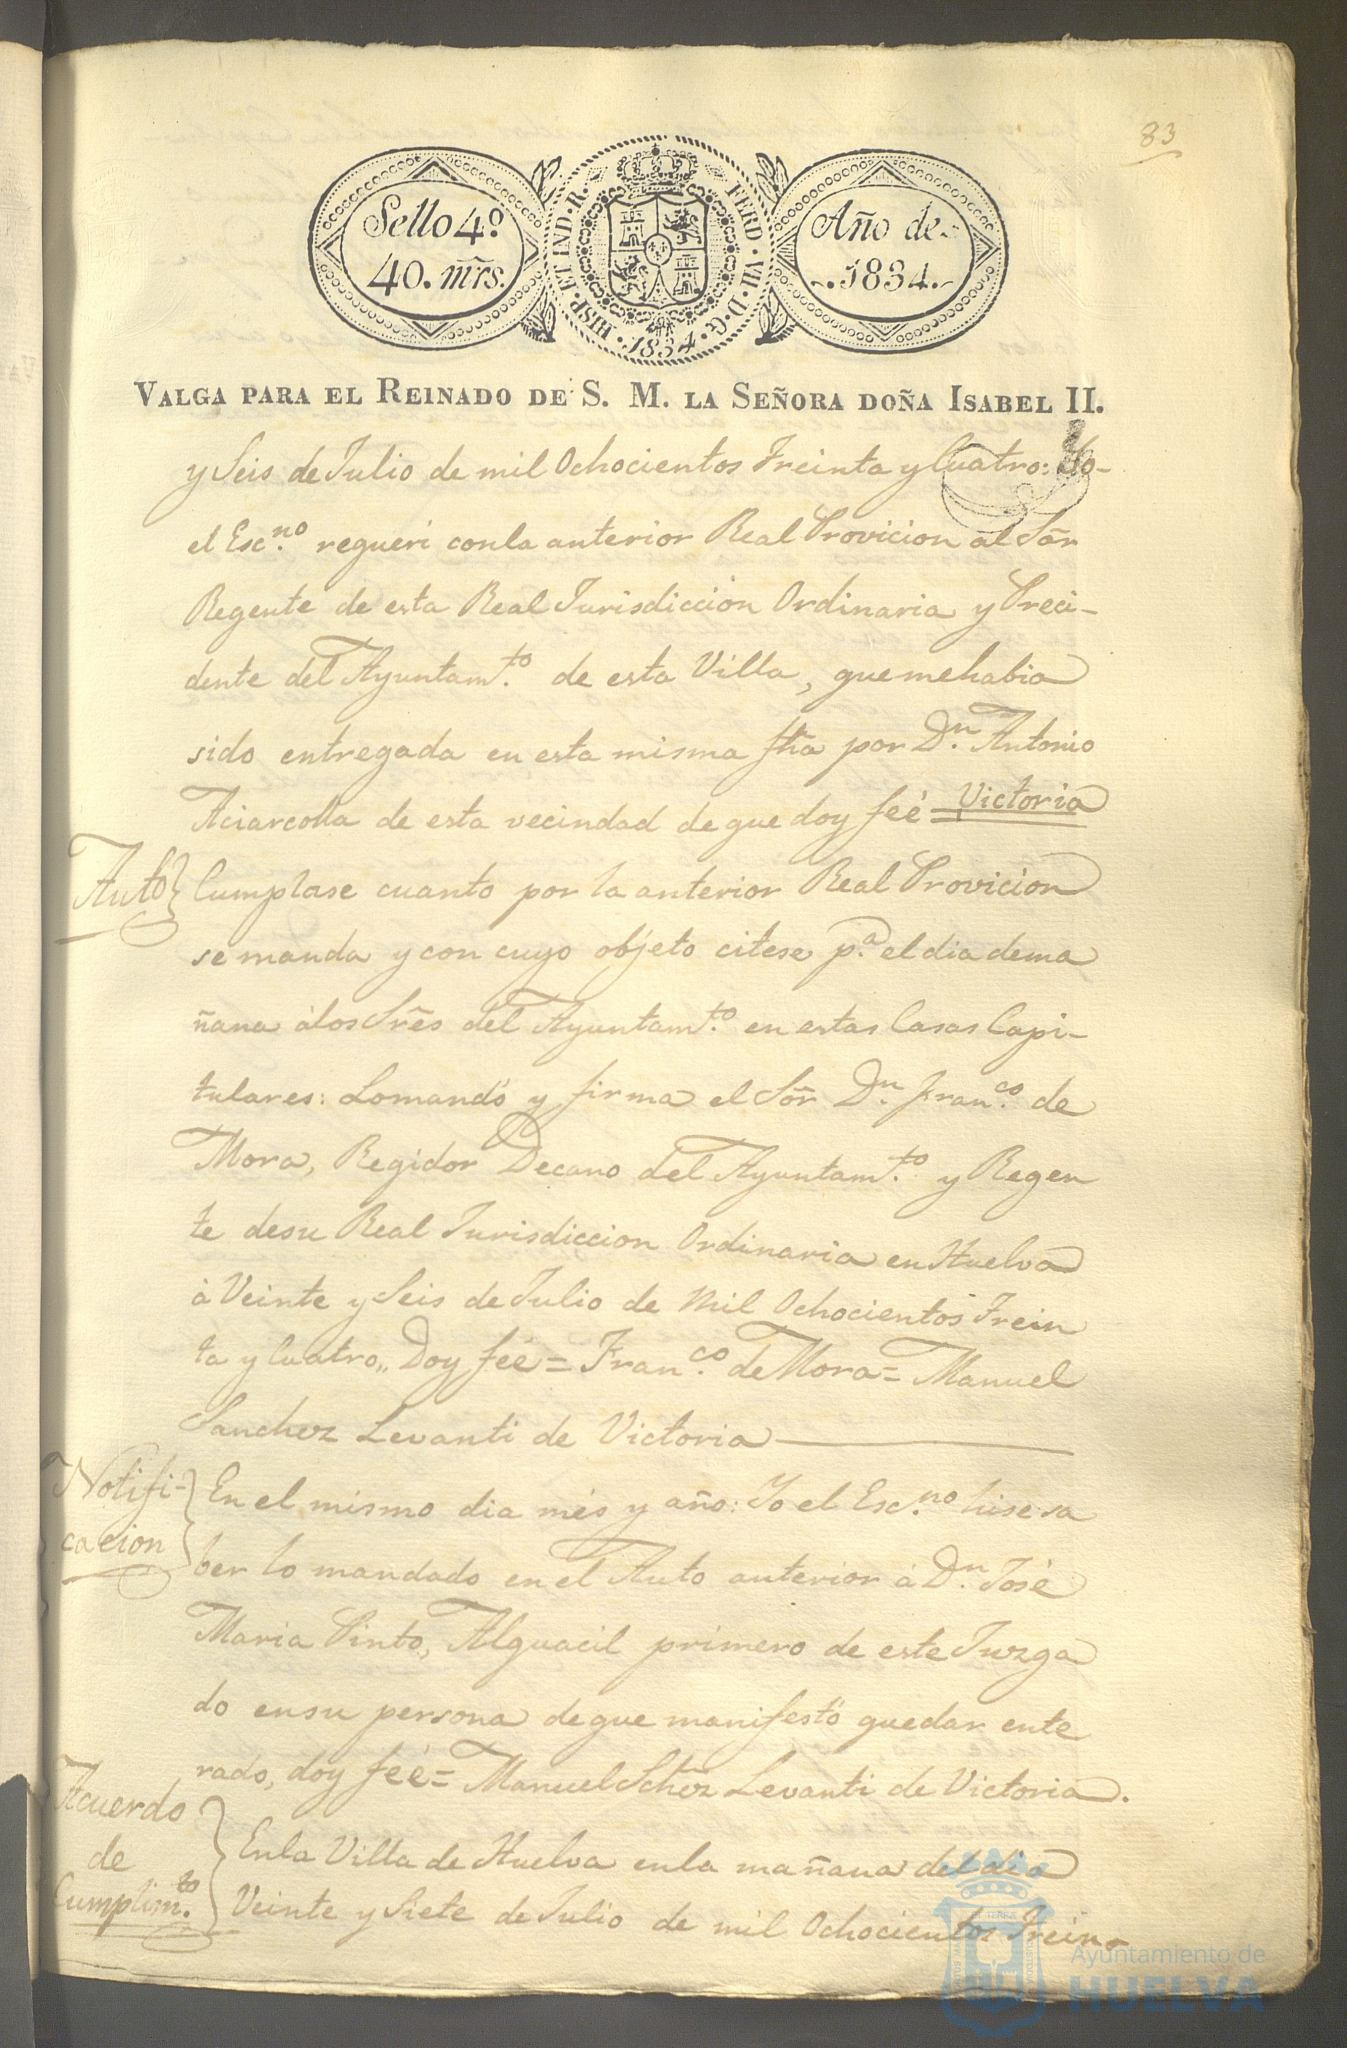 83
Sello 4º
40. mrs.
HISP. ET IND. R. FERD. VII. D. G. 1834.
Año de
1834.
VALGA PARA EL REINADO DE S. M. LA SEÑORA DOÑA ISABEL II.
y Seis de Julio de mil Ochocientos Treinta y Cuatro: Yo
el Esc.no requeri conla anterior Real Provicion al Sōr
Regente de esta Real Jurisdiccion Ordinaria y Preci-
dente del Ayuntam.to de esta Villa, que mehabia
sido entregada en esta misma fha por D.n Antonio
Aciarcolla de esta vecindad de que doy feé = Victoria
Auto
Cumplase cuanto por la anterior Real Provicion
se manda y con cuyo objeto citese p.a el dia dema
ñana álos Sres del Ayuntam.to en estas Casas Capi-
tulares: Lomandó y firma el Sōr D.n Fran.co de
Mora, Regidor Decano del Ayuntam.to y Regen
te desu Real Jurisdiccion Ordinaria en Huelva
á Veinte y Seis de Julio de Mil Ochocientos Trein
ta y Cuatro,, Doy feé = Fran.co de Mora = Manuel
Sanchez Levanti de Victoria
Notifi-
cacion
En el mismo dia més y año: Yo el Esc.no hise sa
ber lo mandado en el Auto anterior á D.n José
Maria Pinto, Alguacil primero de este Juzga
do ensu persona deque manifestó quedar ente
rado, doy feé = Manuel Schēz Levanti de Victoria.
Acuerdo
de
Cumplim.to
Enla Villa de Huelva enla mañana del dia
Veinte y Siete de Julio de mil Ochocientos Trein-
Ayuntamiento de
HUELVA